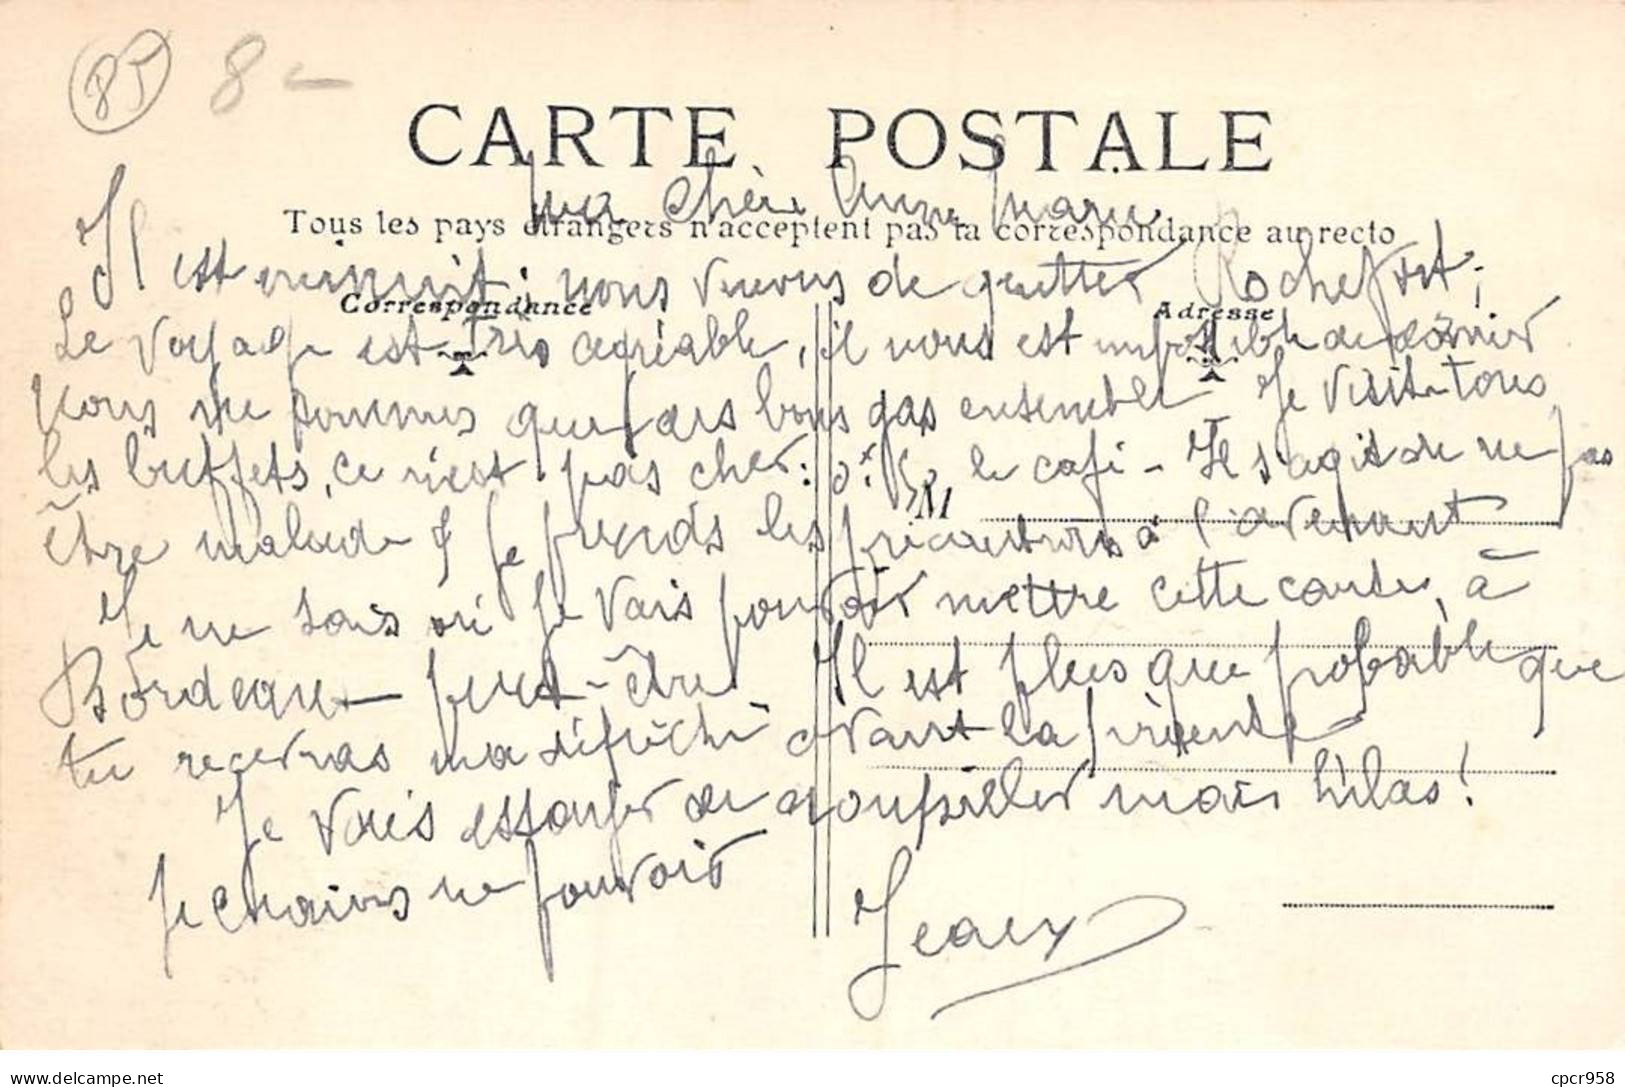 85 8 -
CARTE POSTALE
Ma chère Anne Marie
Tous les pays étrangers n'acceptent pas la correspondance au recto
Il est minuit ; nous venons de quitter Rochefort ;
Correspondance Adresse
Le voyage est très agréable, il nous est impossible de dormir
Nous ne sommes que des bons gas ensemble Je visite tous
les buffets, ce n'est pas cher : 0f 50 le café - Il s'agit de ne pas
M
être malade & je prends les précautions à l'avenant
Je ne sais où je vais pouvoir mettre cette carte, à
Bordeaux peut-être Il est plus que probable que
tu recevras ma avant la présente
Je vais essayer de roupiller mais hélas !
je crains ne pouvoir
Jean
cpcr958